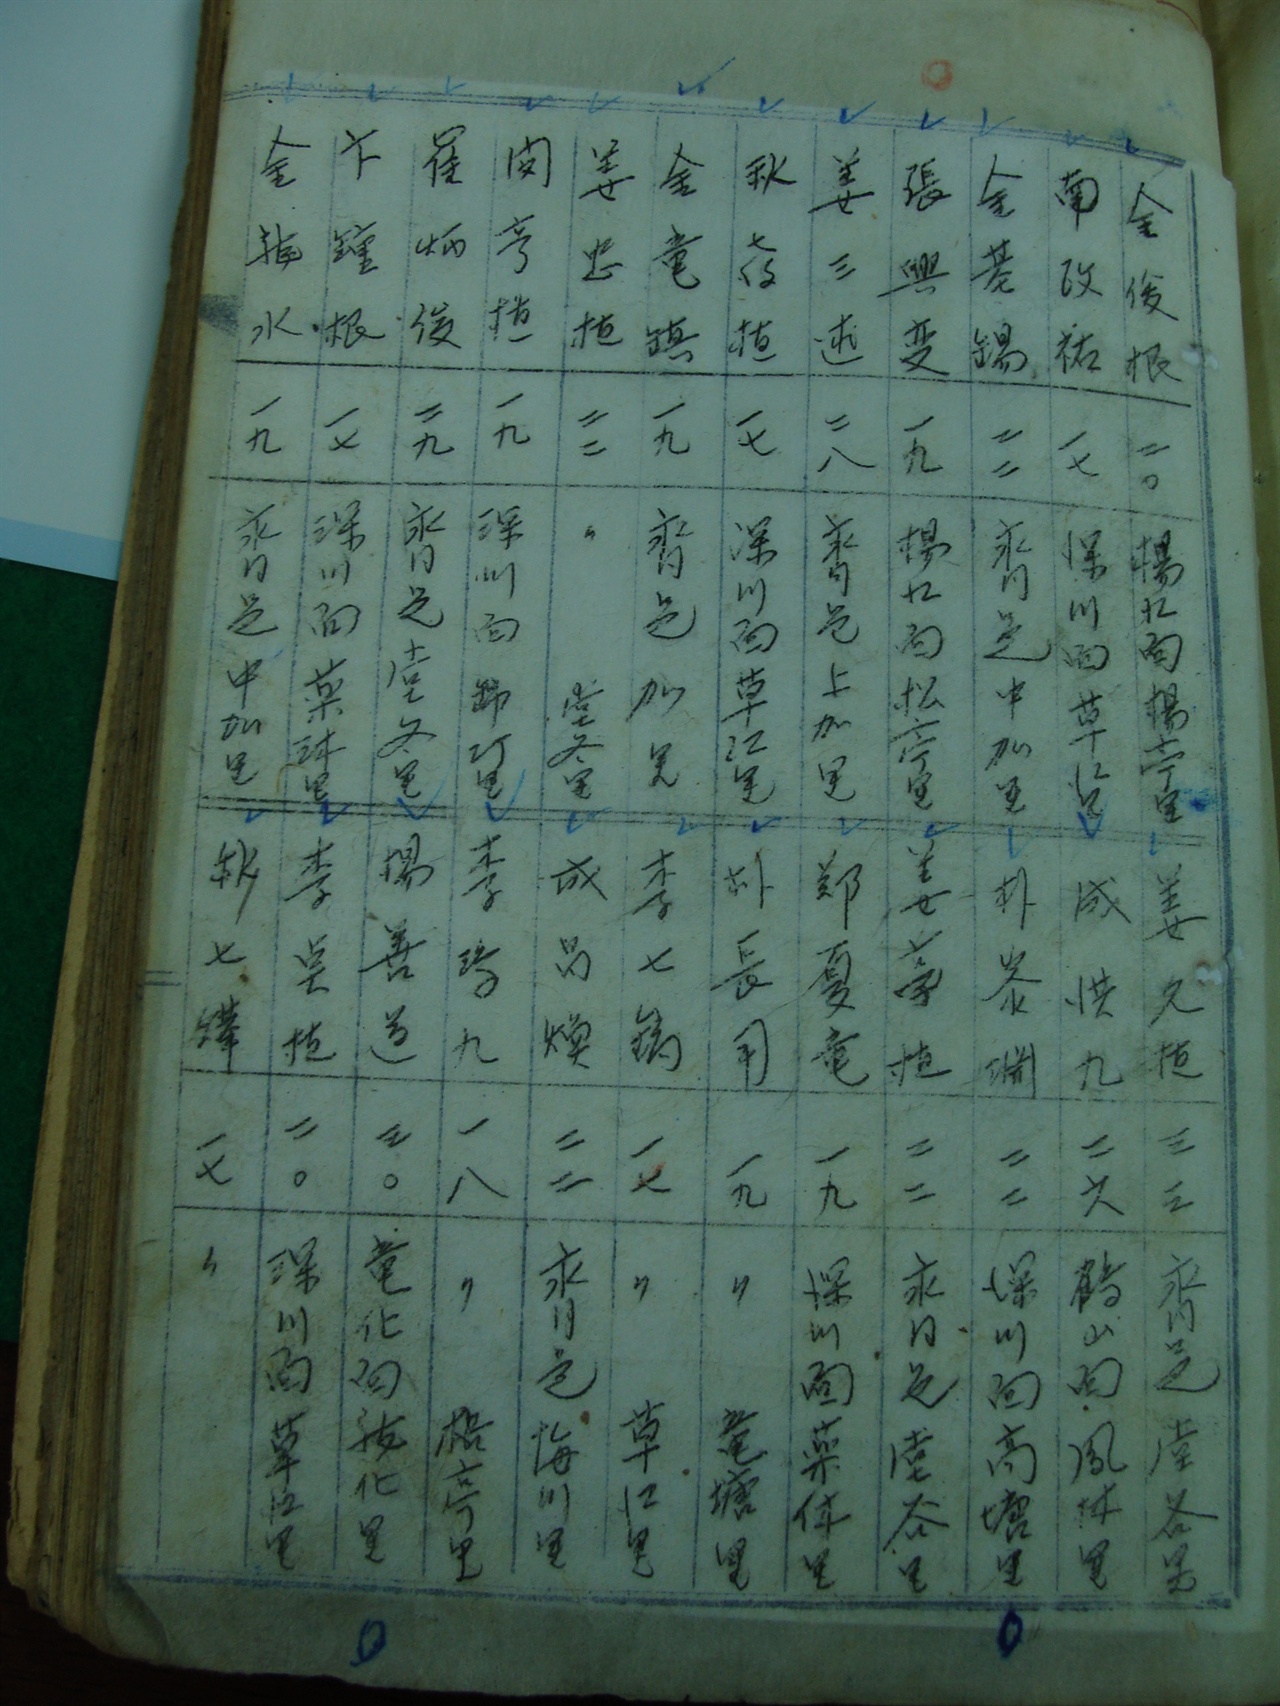 金俊根 二〇 楊江面楊亭里
南政祐 一七 深川面草江里
金基錫 二二 永同邑中加里
張興変 一九 楊江面松亭里
姜三述 二八 永同邑上加里
秋教植 一七 深川面草江里
金竜鎮 一九 永同邑加里
姜忠植 二二 〃 堂谷里
閔亨植 一九 深川面里
崔炳俊 二九 永同邑堂谷里
卞鍾根 一七 深川面藥沐里
金龍水 一九 永同邑中加里
姜久植 三三 永同邑堂谷里
成洪九 二六 鶴山面鳳林里
朴泰淵 二二 深川面高塘里
姜植 二二 永同邑堂谷里
鄭夏竜 一九 深川面藥沐里
朴長用 一九 〃 竜塘里
李七鎬 一七 〃 草江里
成昌煥 二二 永同邑梅川里
李九 一八 〃 亭里
楊善道 三〇 竜化面龍化里
李昊植 二〇 深川面草江里
秋七鐸 一七 〃